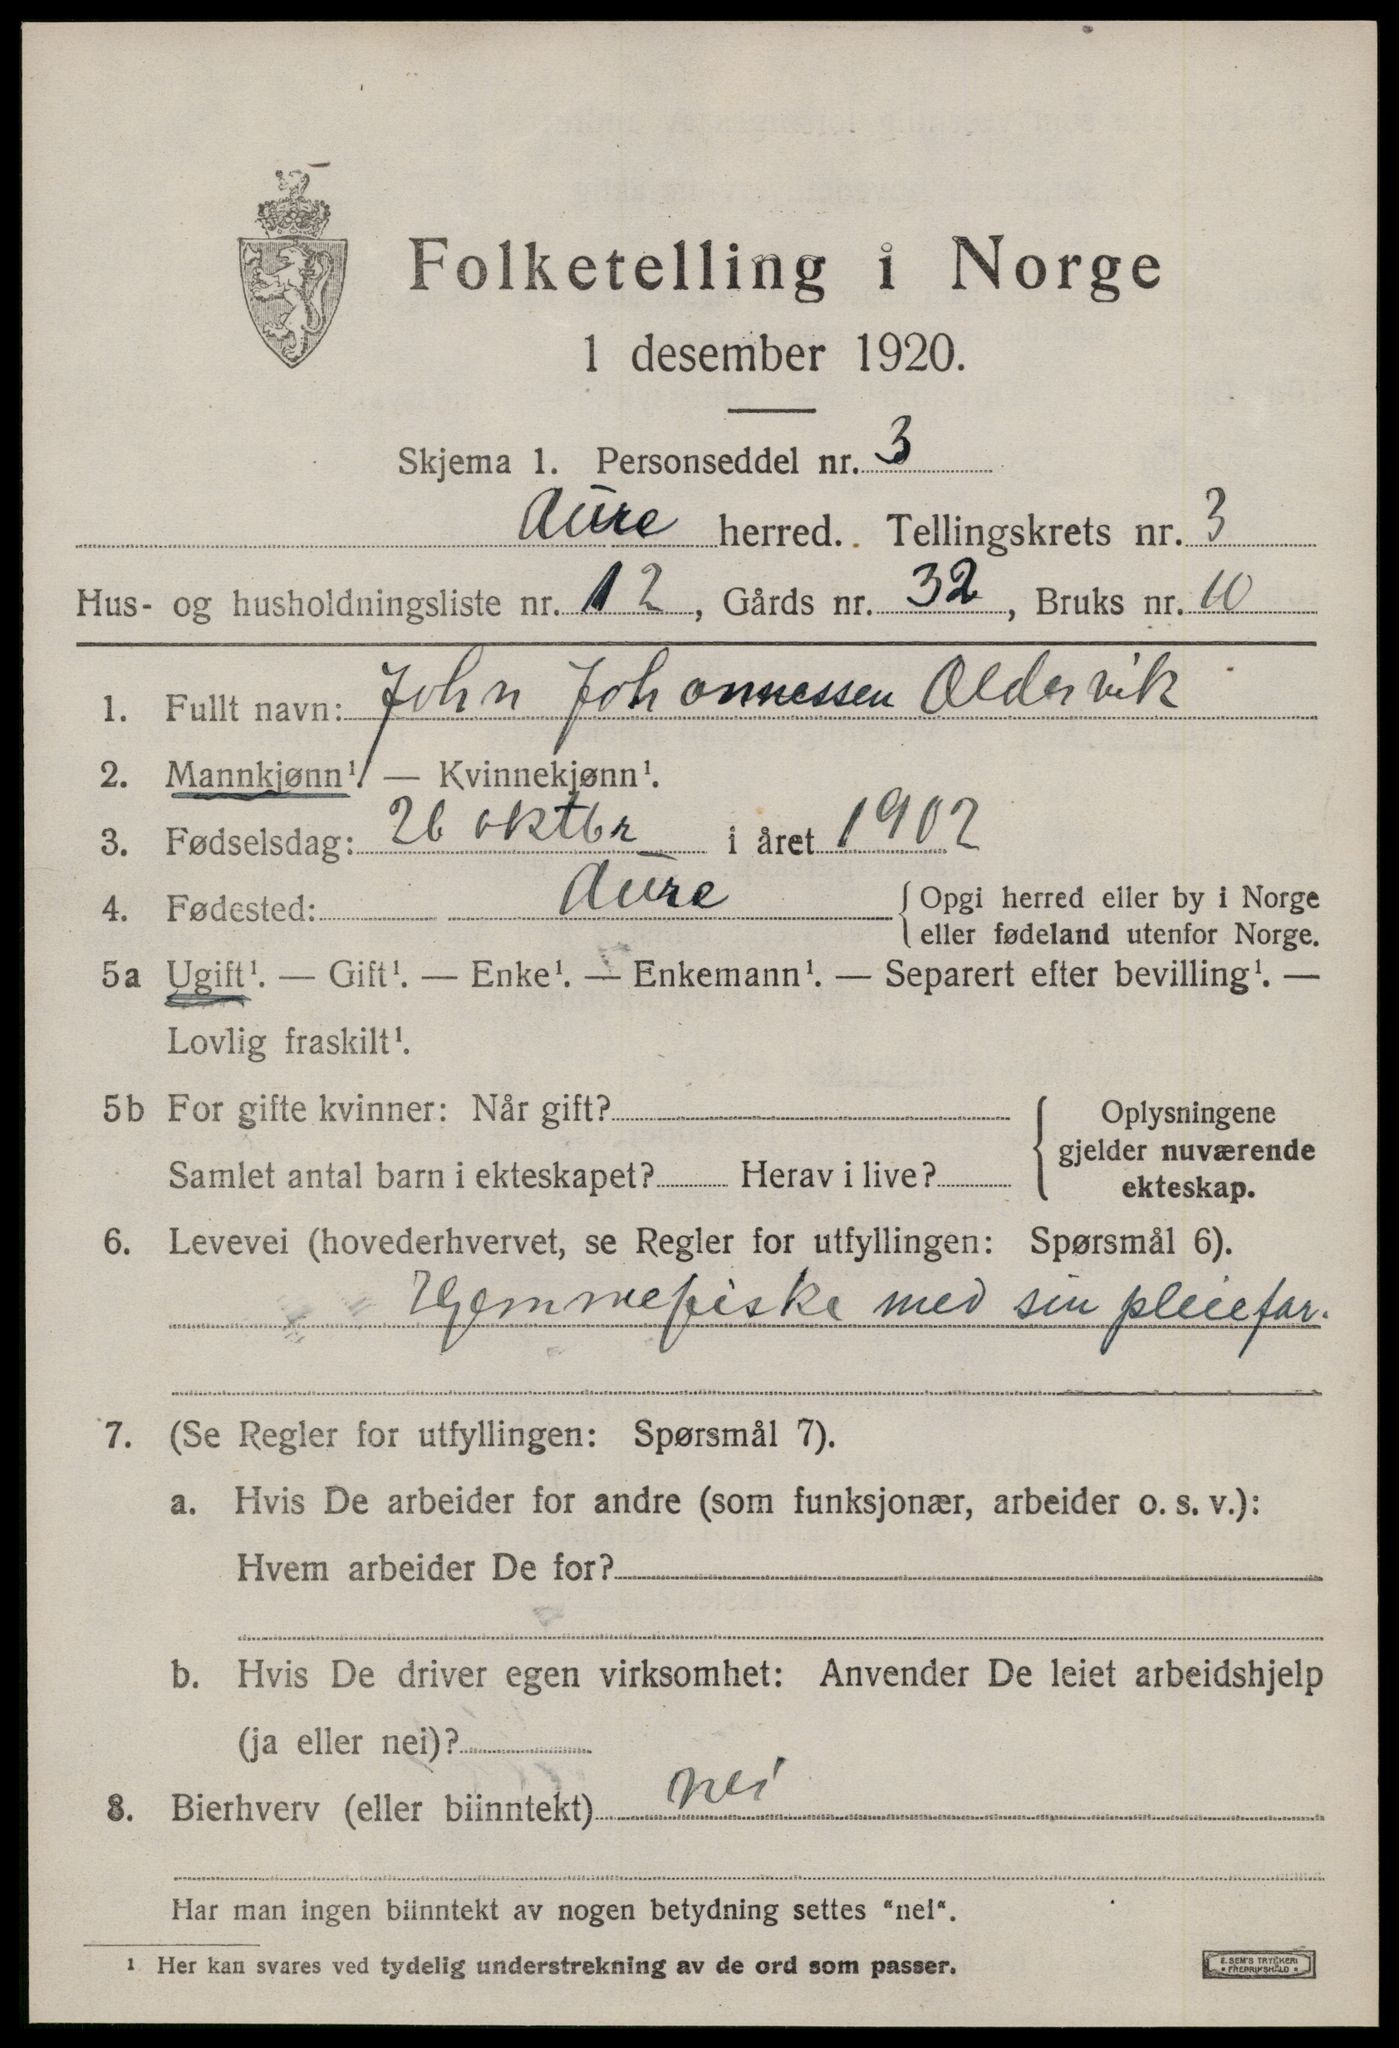 Folketelling i Norge
1 desember 1920.
Skjema 1. Personseddel nr. 3
Aure herred. Tellingskrets nr. 3
Hus- og husholdningsliste nr. 12, Gårds nr. 32, Bruks nr. 10
1. Fullt navn: John Johannessen Oldervik
2. Mannkjønn¹. — Kvinnekjønn¹.
3. Fødselsdag: 26 oktbr i året 1902
4. Fødested: Aure { Opgi herred eller by i Norge
eller fødeland utenfor Norge.
5a Ugift¹. — Gift¹. — Enke¹. — Enkemann¹. — Separert efter bevilling¹. —
Lovlig fraskilt¹.
5b For gifte kvinner: Når gift?
Samlet antal barn i ekteskapet? Herav i live?
{ Oplysningene
gjelder nuværende
ekteskap.
6. Levevei (hovederhvervet, se Regler for utfyllingen: Spørsmål 6).
Hjemmefiske med sin pleiefar.
7. (Se Regler for utfyllingen: Spørsmål 7).
a. Hvis De arbeider for andre (som funksjonær, arbeider o. s. v.):
Hvem arbeider De for?
b. Hvis De driver egen virksomhet: Anvender De leiet arbeidshjelp
(ja eller nei)?
8. Bierhverv (eller biinntekt) nei
Har man ingen biinntekt av nogen betydning settes "nei".
¹ Her kan svares ved tydelig understrekning av de ord som passer.
E. SEM'S TRYKKERI
FREDRIKSHALD